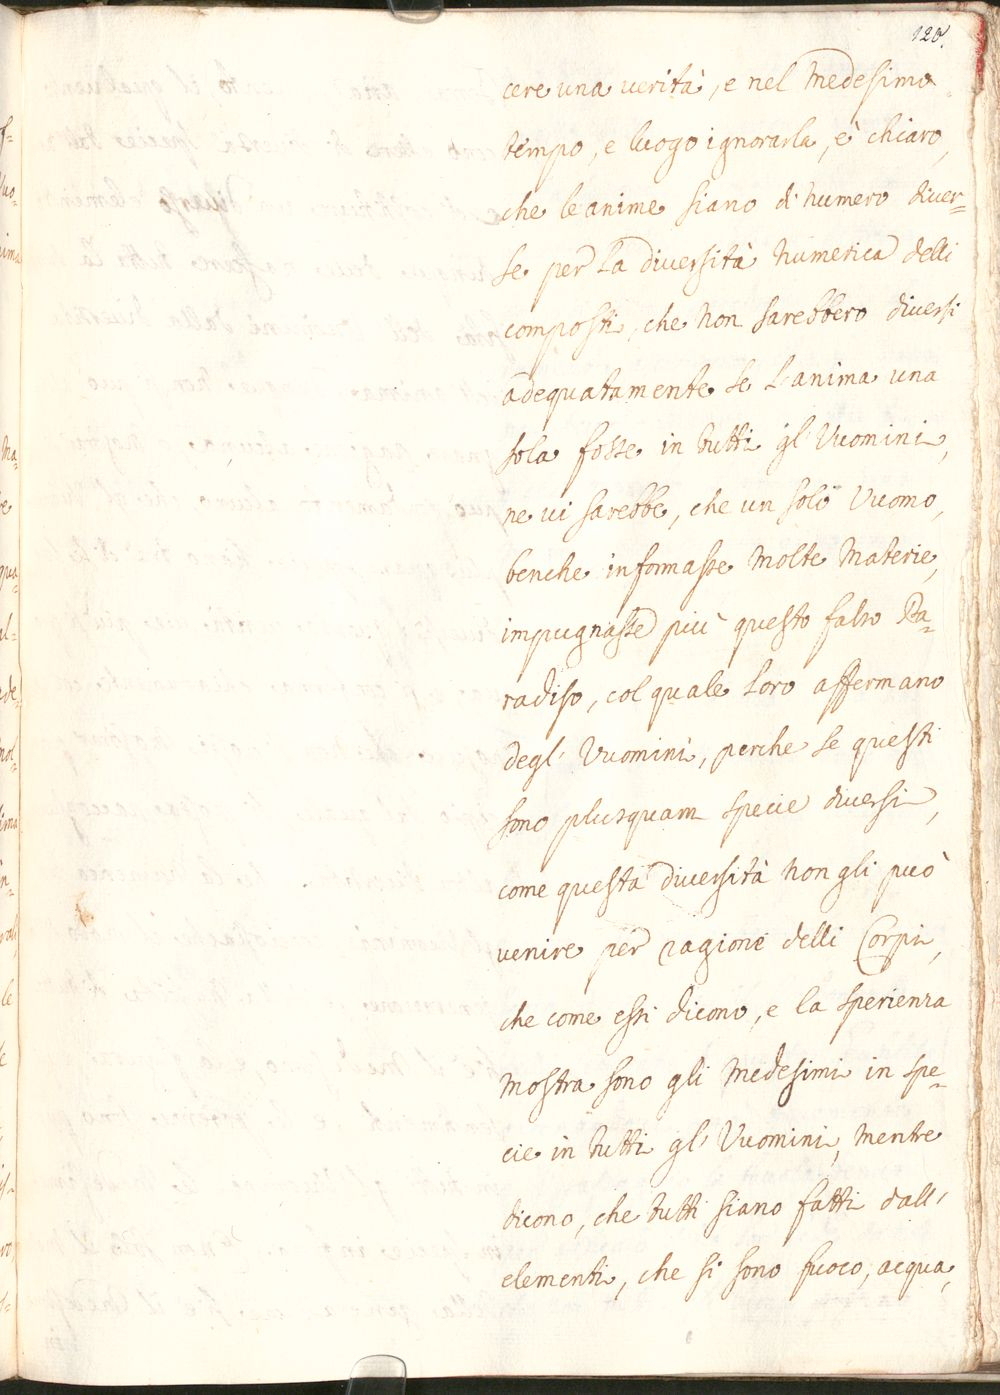 120.
cere una uerità, e nel medesimo
tempo, e luogo ignorarla, è chiaro,
che le anime siano di numero diuer=
se per la diuersità numerica delli
composti, che non sarebbero diuersi
adequatamente se l'anima una
sola fosse in tutti gl'Vuomini,
ne ui sarebbe, che un solo Vuomo,
benche informasse molte materie,
impugnasse più questo falso Pa=
radiso, col quale loro affermano
degl'Vuomini, perche se questi
sono plusquam specie diuersi,
come questa diuersità non gli può
uenire per ragione delli Corpi,
che come essi dicono, e la sperienza
mostra sono gli medesimi in spe=
cie in tutti gl'Vuomini, mentre
dicono, che tutti siano fatti dall'
elementi, che si sono fuoco, acqua,